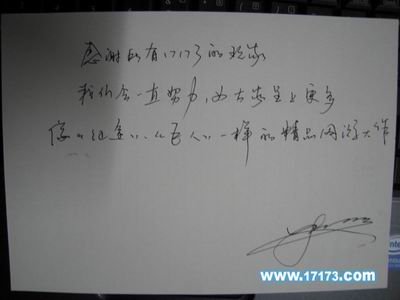 感谢所有17173的玩家
我们会一直努力,为大家呈上更多
像《征途》、《巨人》一样的精品网游大作
intel
www.17173.com